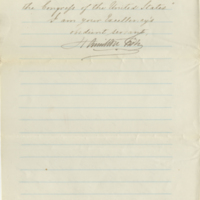 the Congress of the United States."
I am your Excellency's
obedient servant,
Hamilton Fish